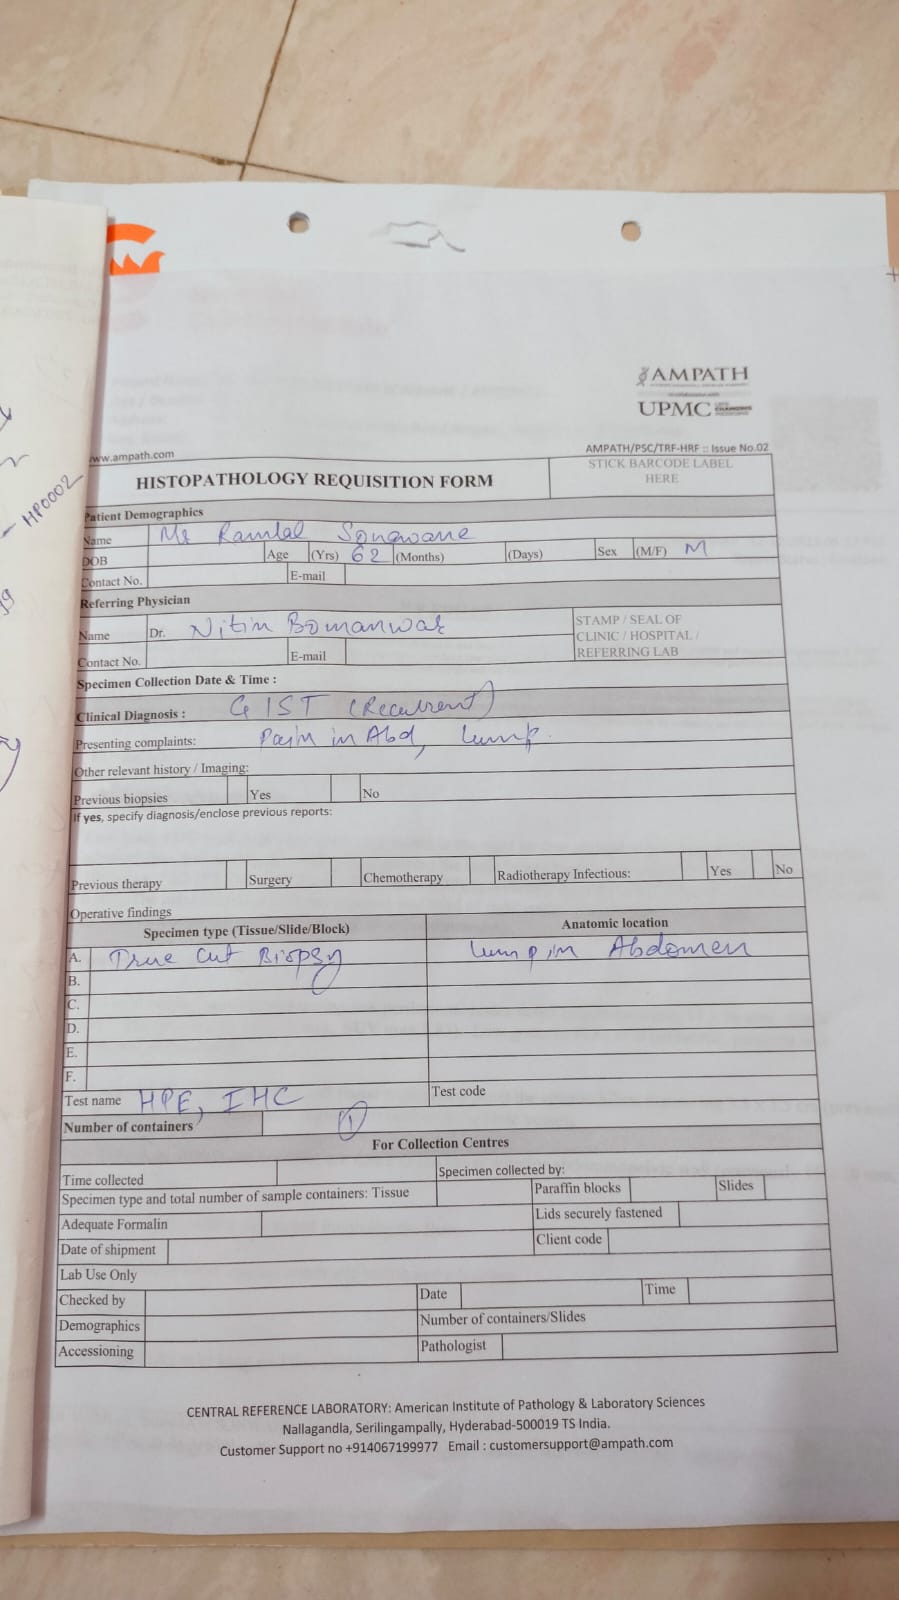 HP0002
AMPATH
UPMC
www.ampath.com
AMPATH/PSC/TRF-HRF :: Issue No.02
HISTOPATHOLOGY REQUISITION FORM
STICK BARCODE LABEL
HERE
Patient Demographics
Name Mr Ramlal Sonawane
DOB Age (Yrs) 62 (Months) (Days) Sex (M/F) M
Contact No. E-mail
Referring Physician
Name Dr. Nitin Bomanwar
STAMP / SEAL OF
CLINIC / HOSPITAL /
REFERRING LAB
Contact No. E-mail
Specimen Collection Date & Time :
Clinical Diagnosis : GIST (Recurrent)
Presenting complaints: Pain in Abd, Lump.
Other relevant history / Imaging:
Previous biopsies Yes No
If yes, specify diagnosis/enclose previous reports:
Previous therapy Surgery Chemotherapy Radiotherapy Infectious: Yes No
Operative findings
Specimen type (Tissue/Slide/Block) Anatomic location
A. True cut Biopsy lump in Abdomen
B.
C.
D.
E.
F.
Test name HPE, IHC Test code
Number of containers 1
For Collection Centres
Time collected Specimen collected by:
Specimen type and total number of sample containers: Tissue Paraffin blocks Slides
Adequate Formalin Lids securely fastened
Date of shipment Client code
Lab Use Only
Checked by Date Time
Demographics Number of containers/Slides
Accessioning Pathologist
CENTRAL REFERENCE LABORATORY: American Institute of Pathology & Laboratory Sciences
Nallagandla, Serilingampally, Hyderabad-500019 TS India.
Customer Support no +914067199977 Email : customersupport@ampath.com